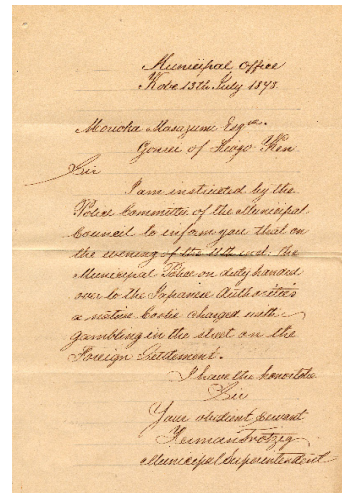 Municipal Office
Kobe 13th July 1873.
Masazumi Esqre.
Gonrei of Hiogo Ken
Sir
I am instructed by the
Police Committee of the Municipal
Council to inform you that on
the evening of the 11th inst. the
Municipal Police on duty handed
over to the Japanese Authorities
a native Coolie charged with
gambling in the street on the
Foreign Settlement.
I have the honor to be
Sir
Your obedient Servant
Herman Trotzig
Municipal Superintendent